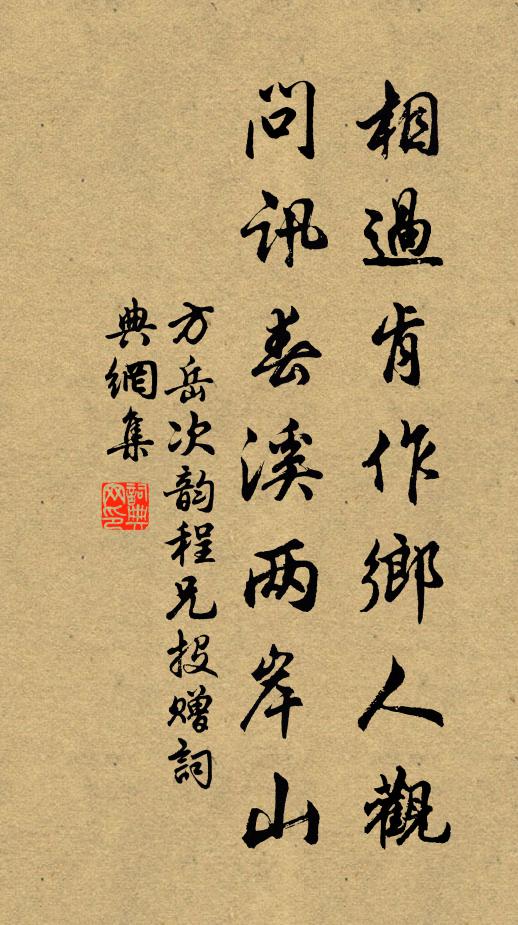 相過肯作鄉人觀
問訊春溪兩岸山
方岳次韵程兄投贈詞
典網集
詞典
网印